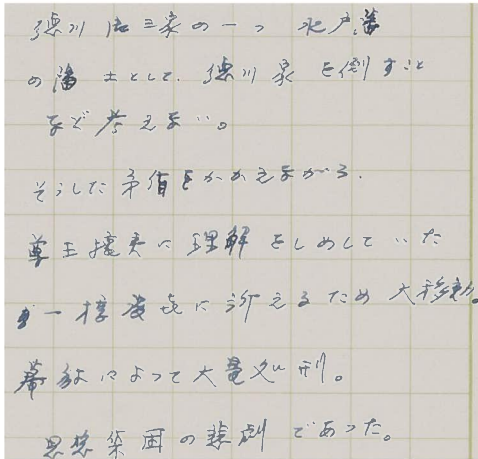 徳川御三家の一つ 水戸藩
の藩士として、徳川家を倒すこと
など考えない。
そうした矛盾をかかえながら、
尊王攘夷に理解をしめしていた
一橋慶喜に訴えるため大移動。
幕敵によって大量処刑。
思想集団の悲劇であった。